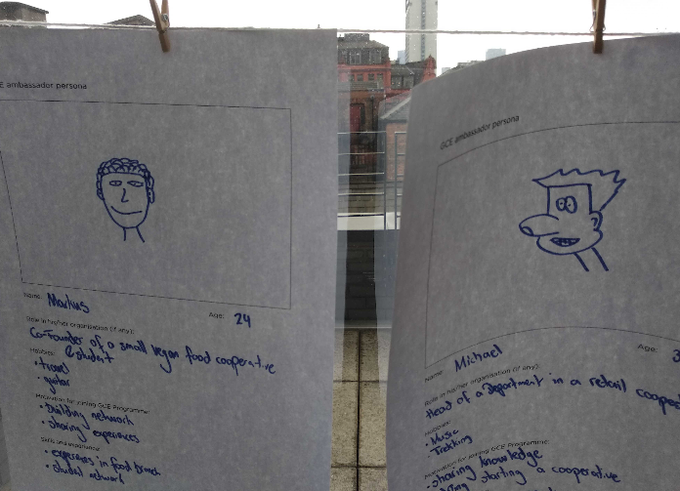 CE ambassador persona
Name: Markus Age: 24
Role in his/her organisation (if any):
Co-Founder of a small vegan food cooperative
Hobbies: & student
• travel
• guitar
Motivation for joining GCE Programme:
• building network
• sharing experiences
Skills and experience:
• experiences in food branch
• student network
GCE ambassador persona
Name: Michael Age: 3
Role in his/her organisation (if any):
Head of a department in a retail cooper
Hobbies:
• Music
• Trekking
Motivation for joining GCE Programme:
• sharing knowledge
starting a cooperative